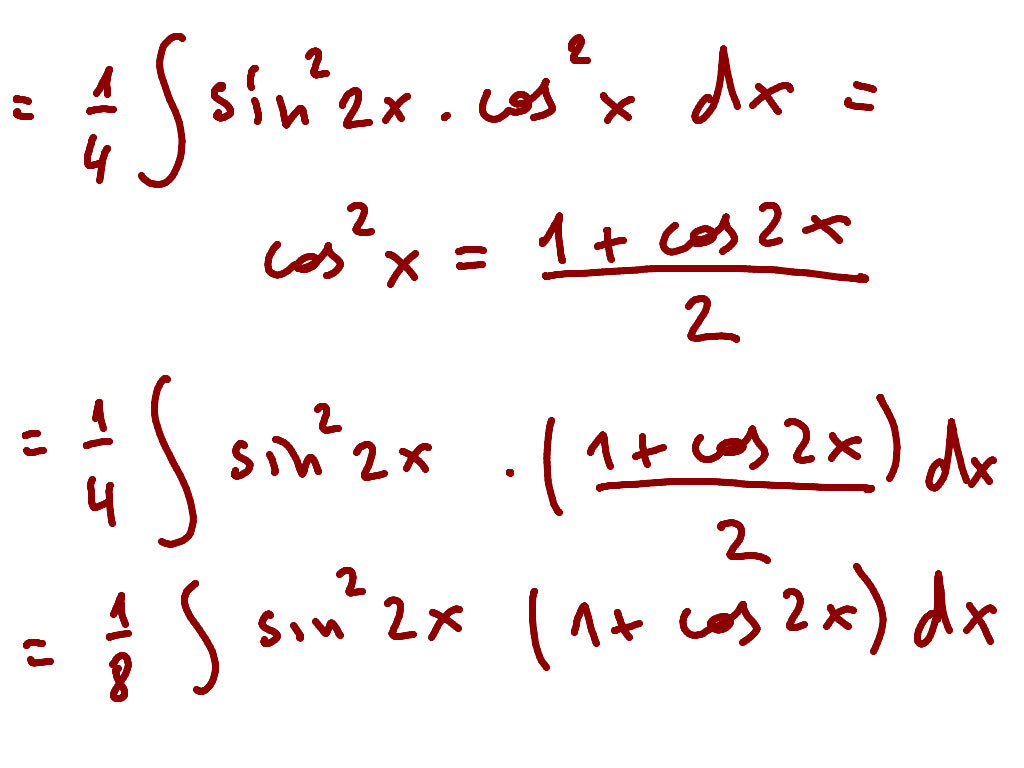 = 1/4 ∫ sin² 2x · cos² x dx =
cos² x = (1 + cos 2x)/2
= 1/4 ∫ sin² 2x · ((1 + cos 2x)/2) dx
= 1/8 ∫ sin² 2x (1 + cos 2x) dx